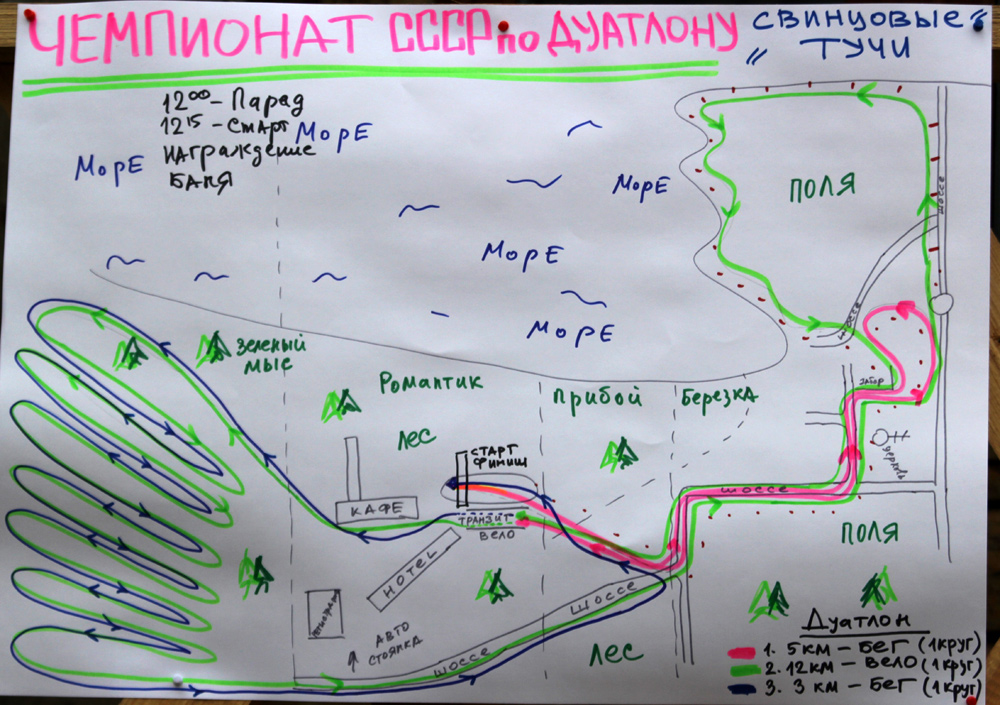 ЧЕМПИОНАТ СССР по ДУАТЛОНУ
"СВИНЦОВЫЕ
ТУЧИ"
12⁰⁰ - Парад
12¹⁵ - Старт
НАГРАЖДЕНИЕ
БАНЯ
МорЕ
МорЕ
МорЕ
МорЕ
МорЕ
ПОЛЯ
шоссе
шоссе
ЗЕЛЕНЫЙ
МЫС
РОМАНТИК
ПРИБОЙ
БЕРЕЗКА
ЗАБОР
ЛЕС
СТАРТ
ФИНИШ
ЦЕРКОВЬ
КАФЕ
ТРАНЗИТ
ВЕЛО
ШОССЕ
ПОЛЯ
HOTEL
ШОССЕ
АВТО
СТОЯНКА
ШОССЕ
ЛЕС
Дуатлон
1. 5 КМ - БЕГ (1 КРУГ)
2. 12 КМ - ВЕЛО (1 КРУГ)
3. 3 КМ - БЕГ (1 КРУГ)